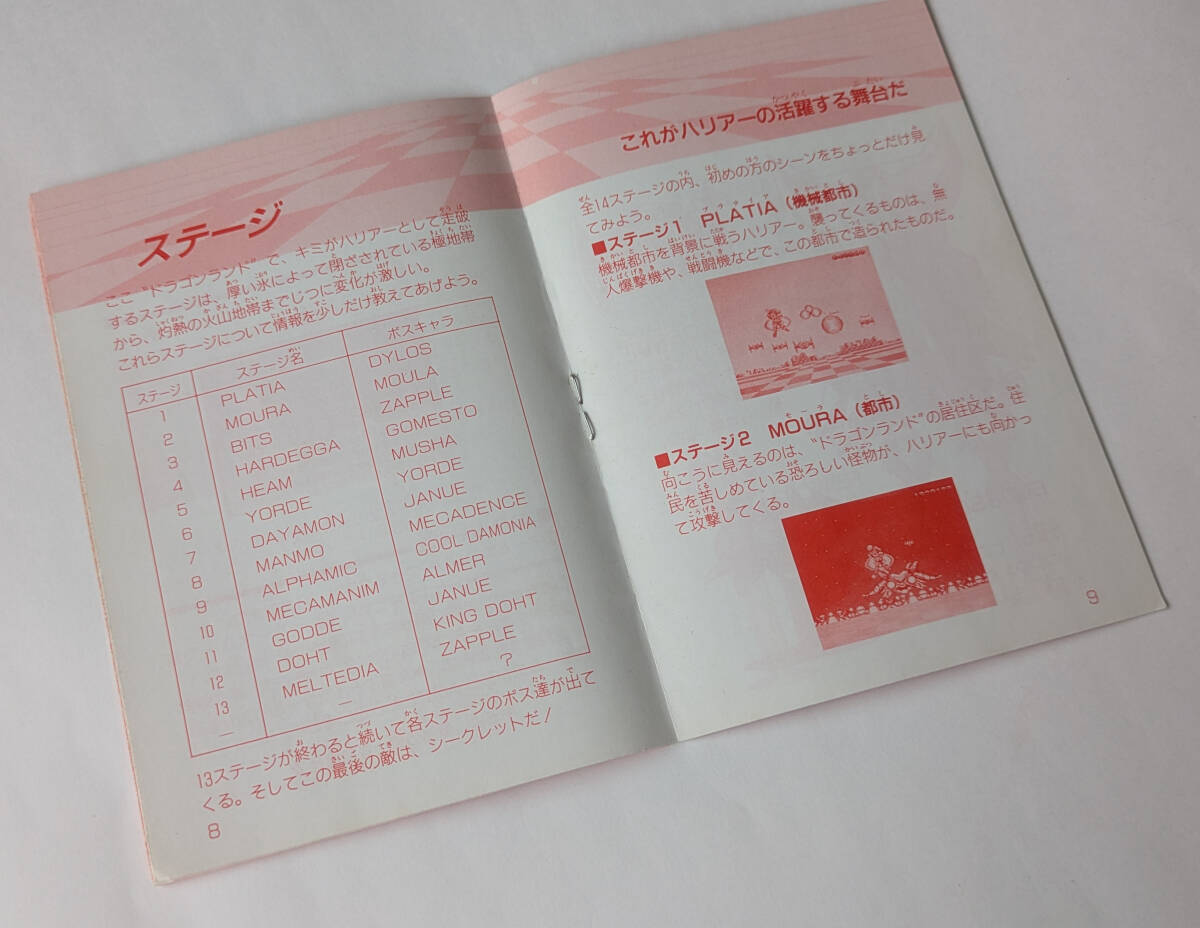 ステージ
ここ“ドラゴンランド”で、キミがハリアーとして走破
するステージは、厚い氷によって閉ざされている極地帯
から、灼熱の火山地帯までじつに変化が激しい。
これらステージについて情報を少しだけ教えてあげよう。
ステージ ステージ名 ボスキャラ
1 PLATIA DYLOS
2 MOURA MOULA
3 BITS ZAPPLE
4 HARDEGGA GOMESTO
5 HEAM MUSHA
6 YORDE YORDE
7 DAYAMON JANUE
8 MANMO MECADENCE
9 ALPHAMIC COOL DAMONIA
10 MECAMANIM ALMER
11 GODDE JANUE
12 DOHT KING DOHT
13 MELTEDIA ZAPPLE
— — ?
13ステージが終わると続いて各ステージのボス達が出て
くる。そしてこの最後の敵は、シークレットだ!
8
これがハリアーの活躍する舞台だ
全14ステージの内、初めの方のシーンをちょっとだけ見
てみよう。
■ステージ1 PLATIA(機械都市)
機械都市を背景に戦うハリアー。襲ってくるものは、無
人爆撃機や、戦闘機などで、この都市で造られたものだ。
■ステージ2 MOURA(都市)
向こうに見えるのは、“ドラゴンランド”の居住区だ。住
民を苦しめている恐ろしい怪物が、ハリアーにも向かっ
て攻撃してくる。
9